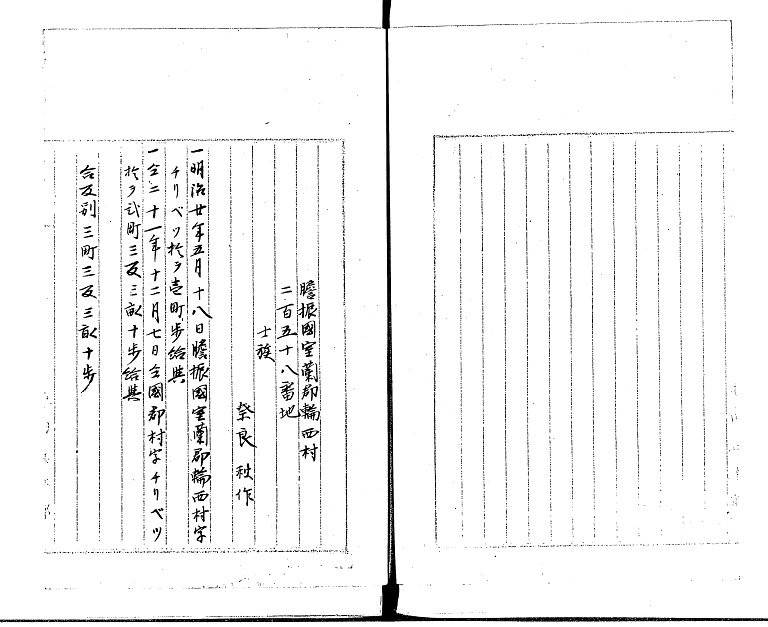 膽振國室蘭郡輪西村
二百五十八番地
士族
奈良 秋作
一明治廿年五月十八日膽振國室蘭郡輪西村字
チリベツ於ヲ壱町歩給與
一仝二十一年十二月七日仝國郡村字チリベツ
於ヲ弐町三反三畝十歩給與
合反別三町三反三畝十歩